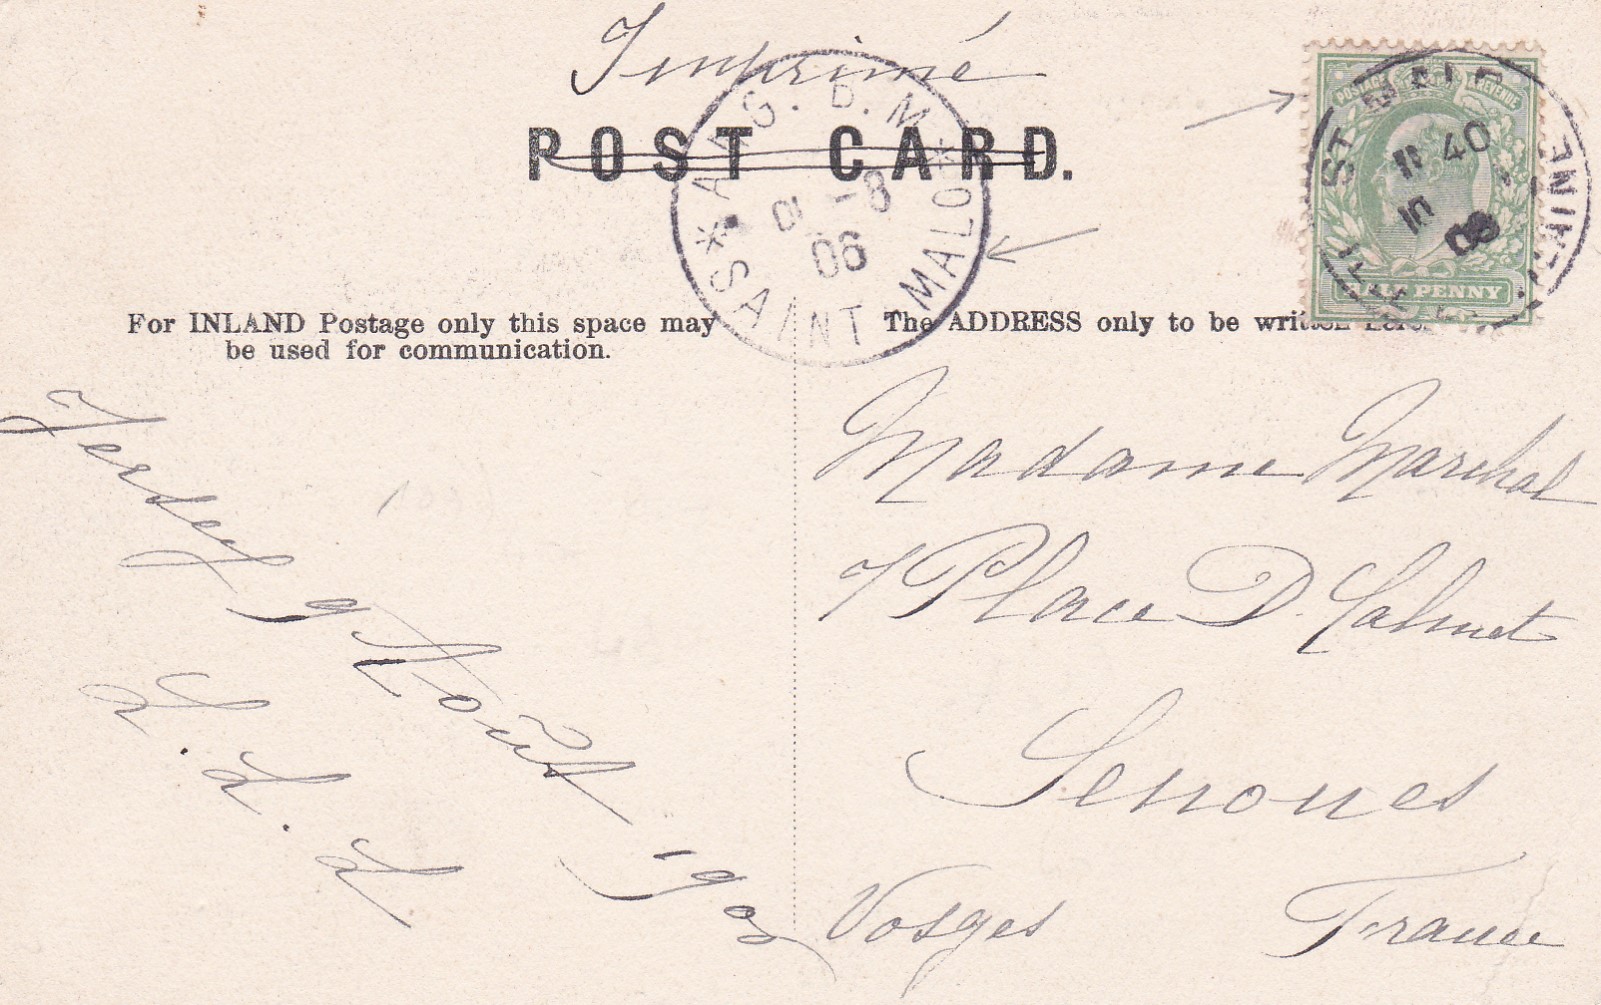 Imprimé
POST CARD.
ANG. B. M
SAINT MALO
-8
06
POSTAGE REVENUE
HALF PENNY
ST
11 40
10
06
For INLAND Postage only this space may
be used for communication.
The ADDRESS only to be written here.
Jersey 9 Août 190
L. L. L
Madame Marchal
7 Place D. Calmet
Senones
Vosges France